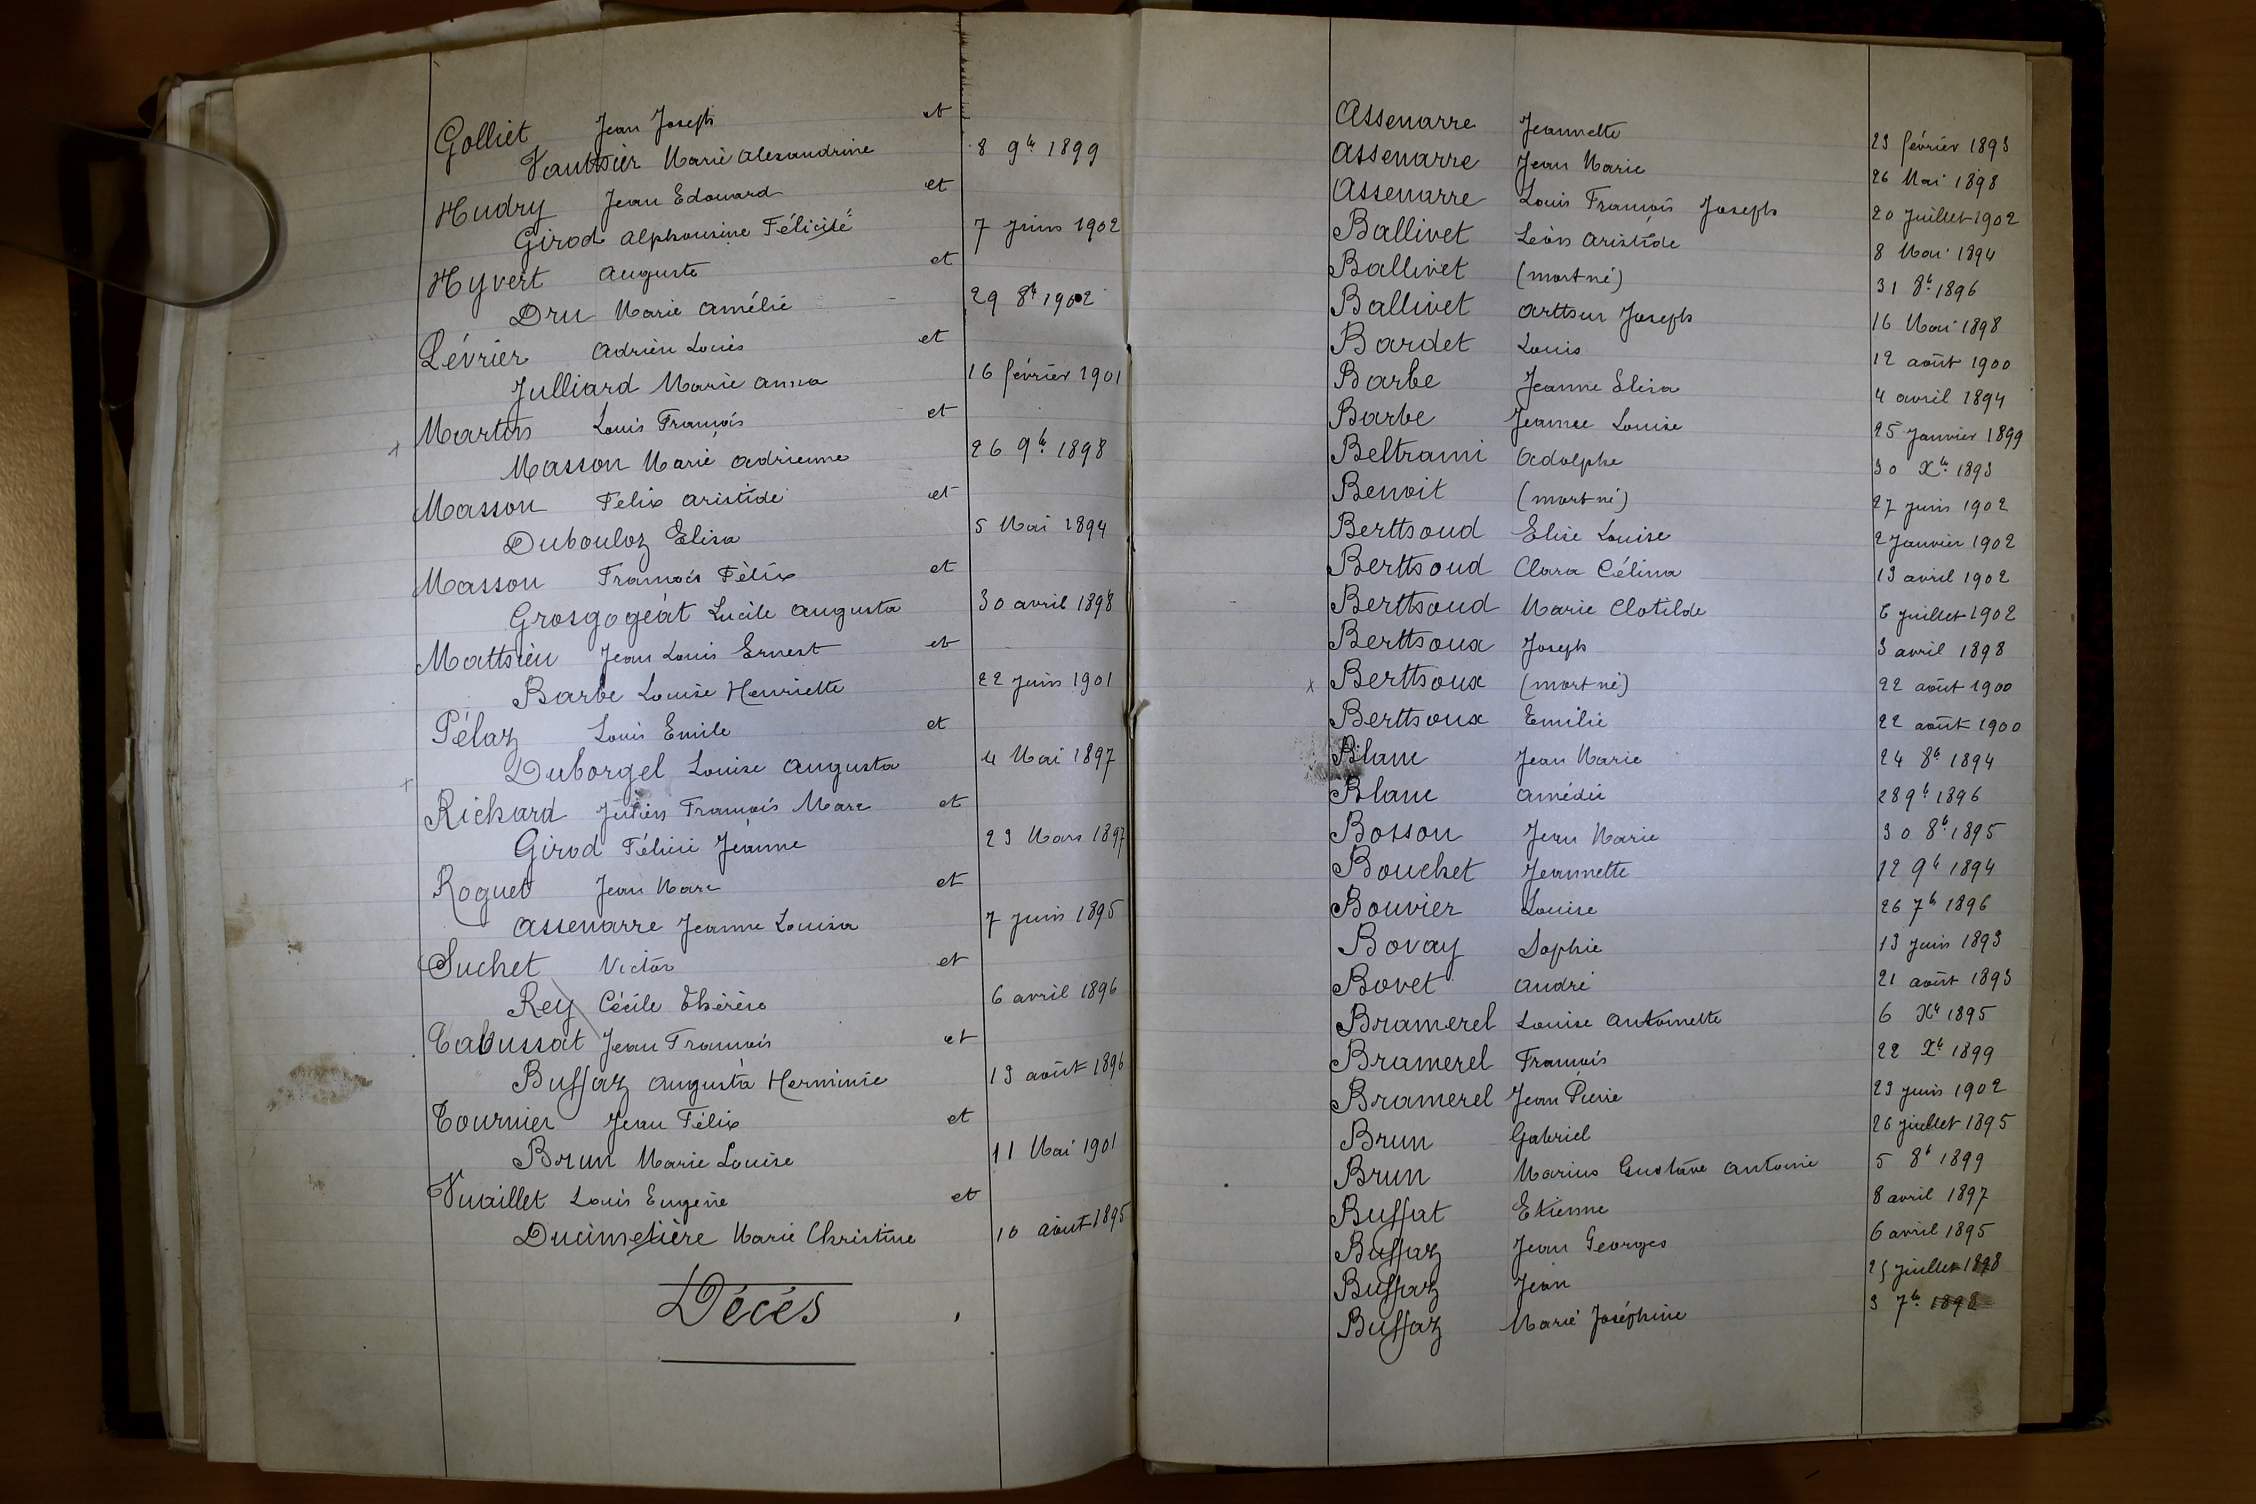 Golliet Jean Joseph et
Vauthier Marie Alexandrine 8 9bre 1899
Hudry Jean Edouard et
Girod Alphonsine Félicité 7 juin 1902
Hyvert Auguste et
Dru Marie Amélie 29 8bre 1902
Lévrier Adrien Louis et
Julliard Marie Anna 16 février 1901
x Martin Louis François et
Masson Marie Adrienne 26 9bre 1898
Masson Felix Aristide et
Dubouloz Elisa 5 Mai 1894
Masson François Félix et
Grosgogeat Lucile Augusta 30 avril 1898
Matthieu Jean Louis Ernest et
Barbe Louise Henriette 22 juin 1901
Pélaz Louis Emile et
Duborgel Louise Augusta 4 Mai 1897
x Richard Julien François Marc et
Girod Félicie Jeanne 23 Mars 1897
Roguet Jean Marc et
Assenarre Jeanne Louisa 7 juin 1895
Suchet Victor et
Rey Cécile Thérèse 6 avril 1896
Tabussat Jean François et
Buffaz Augusta Herminie 13 août 1896
Tournier Jean Félix et
Brun Marie Louise 11 Mai 1901
Vuaillet Louis Eugène et
Ducimetière Marie Christine 10 août 1895
Décès
Assenarre Jeannette 23 février 1893
Assenarre Jean Marie 26 Mai 1898
Assenarre Louis François Joseph 20 juillet 1902
Ballivet Léon Aristide 8 Mai 1894
Ballivet (mort né) 31 8bre 1896
Ballivet Arthur Joseph 16 Mai 1898
Bardet Louis 12 août 1900
Barbe Jeanne Elisa 4 avril 1894
Barbe Jeanne Louise 25 janvier 1899
Beltrami Adolphe 30 Xbre 1893
Benoit (mort né) 27 juin 1902
Berthoud Elise Louise 2 janvier 1902
Berthoud Clara Célina 13 avril 1902
Berthoud Marie Clotilde 6 juillet 1902
Berthoux Joseph 3 avril 1898
x Berthoux (mort né) 22 août 1900
Berthoux Emilie 22 août 1900
Blanc Jean Marie 24 8bre 1894
Blanc Amédée 28 9bre 1896
Bosson Jean Marie 30 8bre 1895
Bouchet Jeannette 12 9bre 1894
Bouvier Louise 26 7bre 1896
Bovay Sophie 13 juin 1893
Bovet André 21 août 1893
Bramerel Louise Antoinette 6 Xbre 1895
Bramerel François 22 Xbre 1899
Bramerel Jean Pierre 23 juin 1902
Brun Gabriel 26 juillet 1895
Brun Marius Gustave Antoine 5 8bre 1899
Buffat Etienne 8 avril 1897
Buffaz Jean Georges 6 avril 1895
Buffaz Jean juillet 1898
Buffaz Marie Joséphine 3 7bre 1898